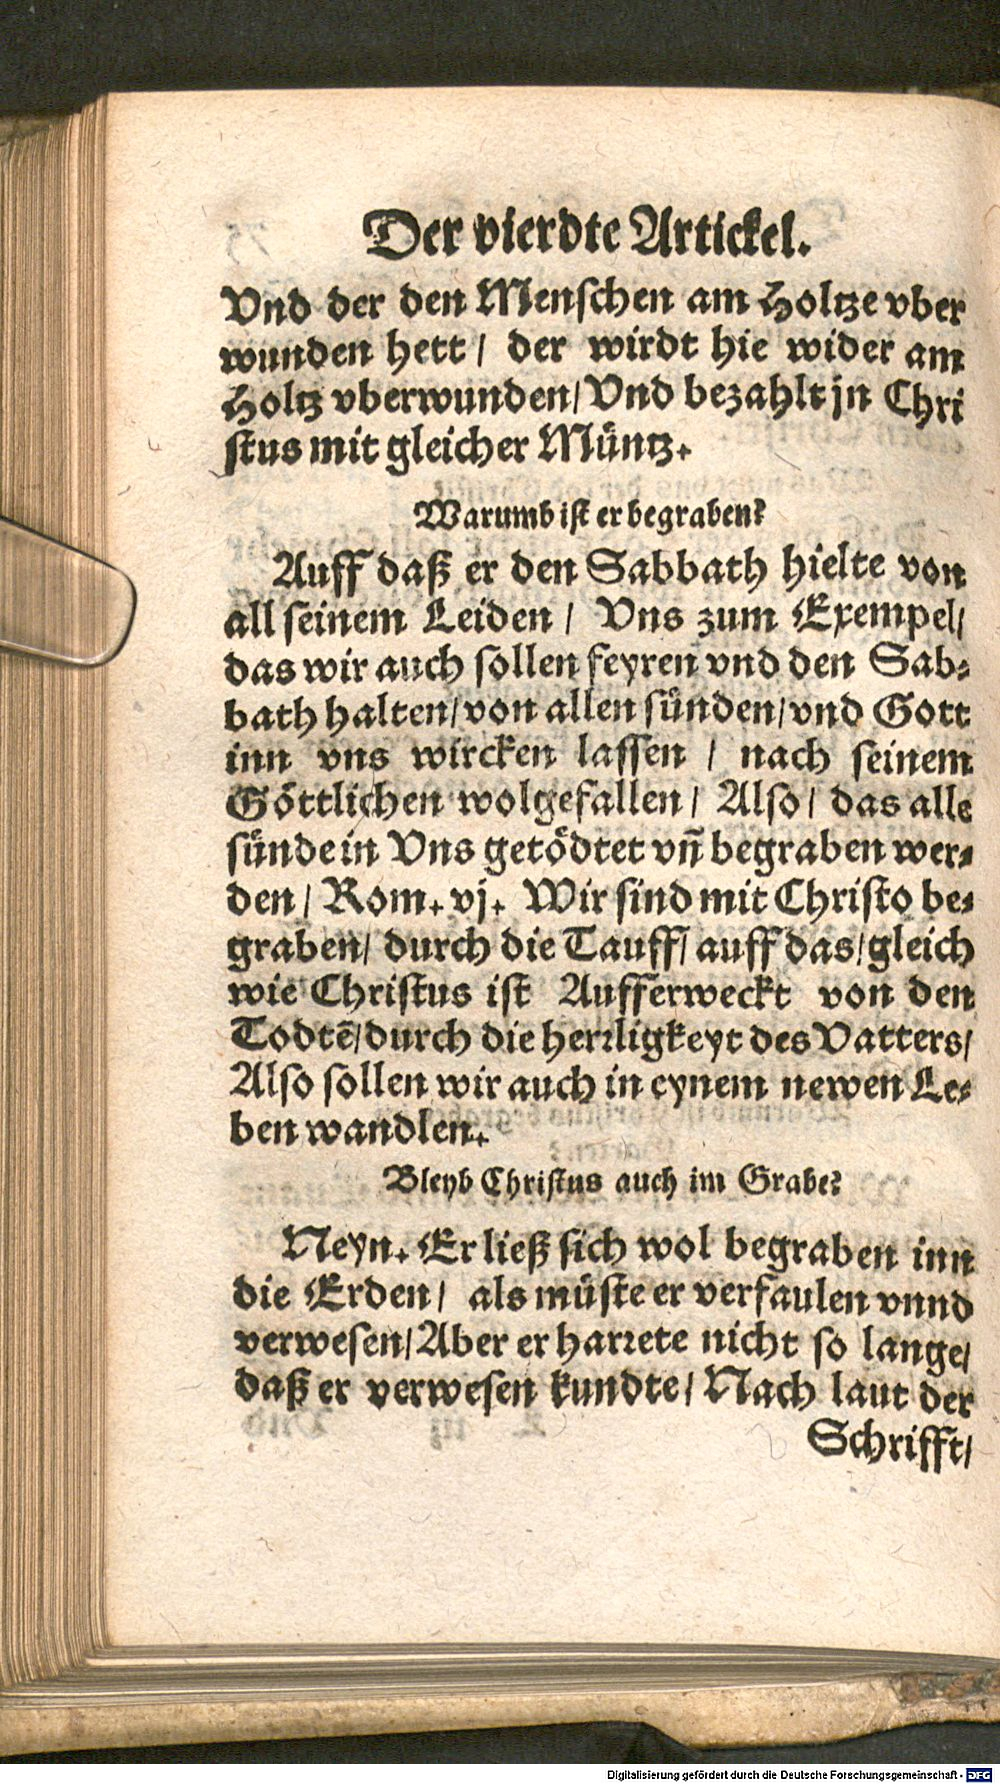 Der vierdte Artickel.
Vnd der den Menschen am Holtze vber
wunden hett / der wirdt hie wider am
Holtz vberwunden / Vnd bezahlt jn Chri
stus mit gleicher Müntz.
Warumb ist er begraben?
Auff daß er den Sabbath hielte von
all seinem Leiden / Vns zum Exempel /
das wir auch sollen feyren vnd den Sab-
bath halten / von allen sünden / vnd Gott
inn vns wircken lassen / nach seinem
Göttlichen wolgefallen / Also / das alle
sünde in Vns getödtet vñ begraben wer-
den / Rom. vj. Wir sind mit Christo be-
graben / durch die Tauff / auff das / gleich
wie Christus ist Aufferweckt von den
Todtẽ / durch die herrligkeyt des Vatters /
Also sollen wir auch in eynem newen Le-
ben wandlen.
Bleyb Christus auch im Grabe?
Neyn. Er ließ sich wol begraben inn
die Erden / als müste er verfaulen vnnd
verwesen / Aber er harrete nicht so lange /
daß er verwesen kundte / Nach laut der
Schrifft /
Digitalisierung gefördert durch die Deutsche Forschungsgemeinschaft - DFG